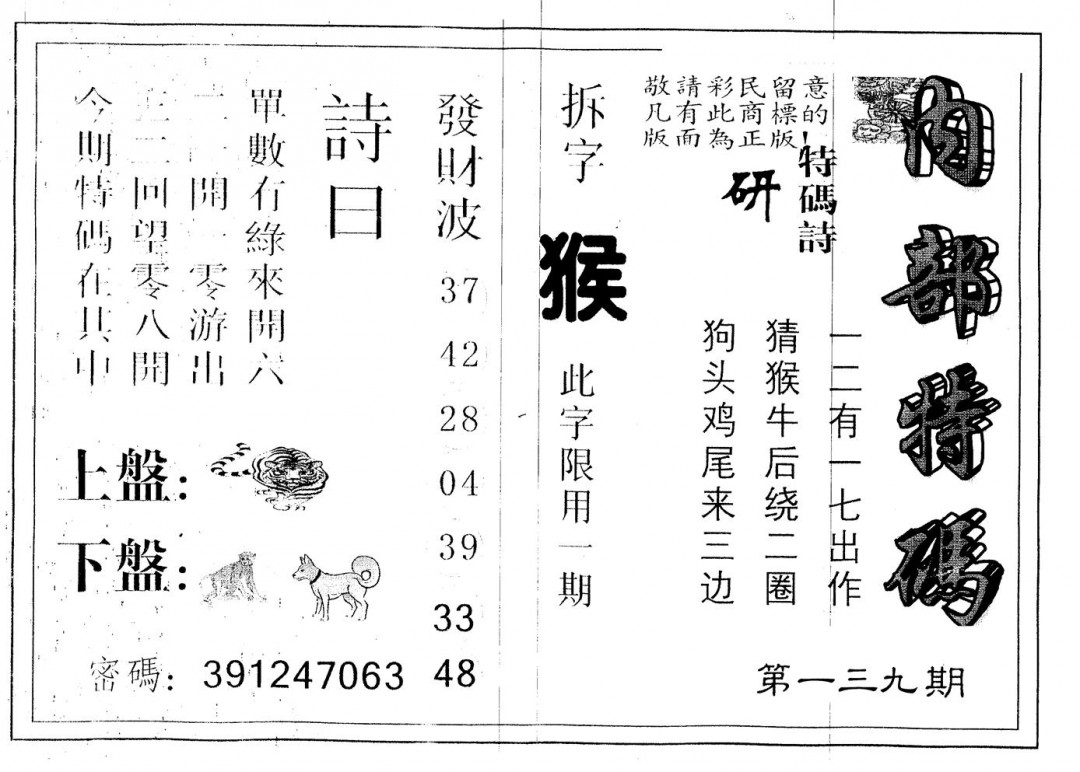 內部特碼
第一三九期
敬請彩民留意
凡有此商標的
版面為正版！
特碼詩
研
一二有一七出作
猜猴牛后绕二圈
狗头鸡尾来三边
拆字
猴
此字限用一期
發財波
37
42
28
04
39
33
48
詩曰
單數冇綠來開六
開一零游出
二回望零八開
今期特碼在其中
上盤：
下盤：
密碼：391247063